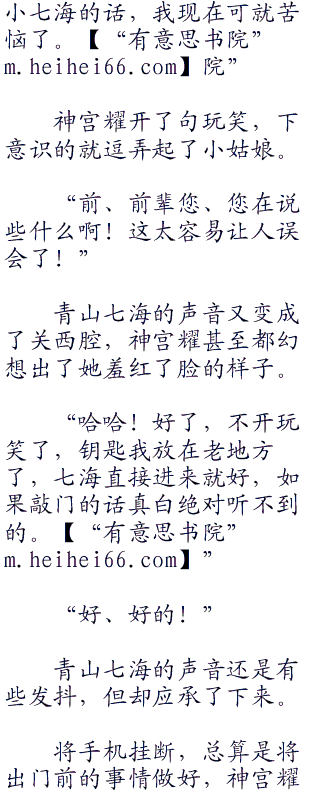 小七海的话，我现在可就苦
恼了。【“有意思书院”
m.heihei66.com】院”
神宫耀开了句玩笑，下
意识的就逗弄起了小姑娘。
“前、前辈您、您在说
些什么啊！这太容易让人误
会了！”
青山七海的声音又变成
了关西腔，神宫耀甚至都幻
想出了她羞红了脸的样子。
“哈哈！好了，不开玩
笑了，钥匙我放在老地方
了，七海直接进来就好，如
果敲门的话真白绝对听不到
的。【“有意思书院”
m.heihei66.com】”
“好、好的！”
青山七海的声音还是有
些发抖，但却应承了下来。
将手机挂断，总算是将
出门前的事情做好，神宫耀